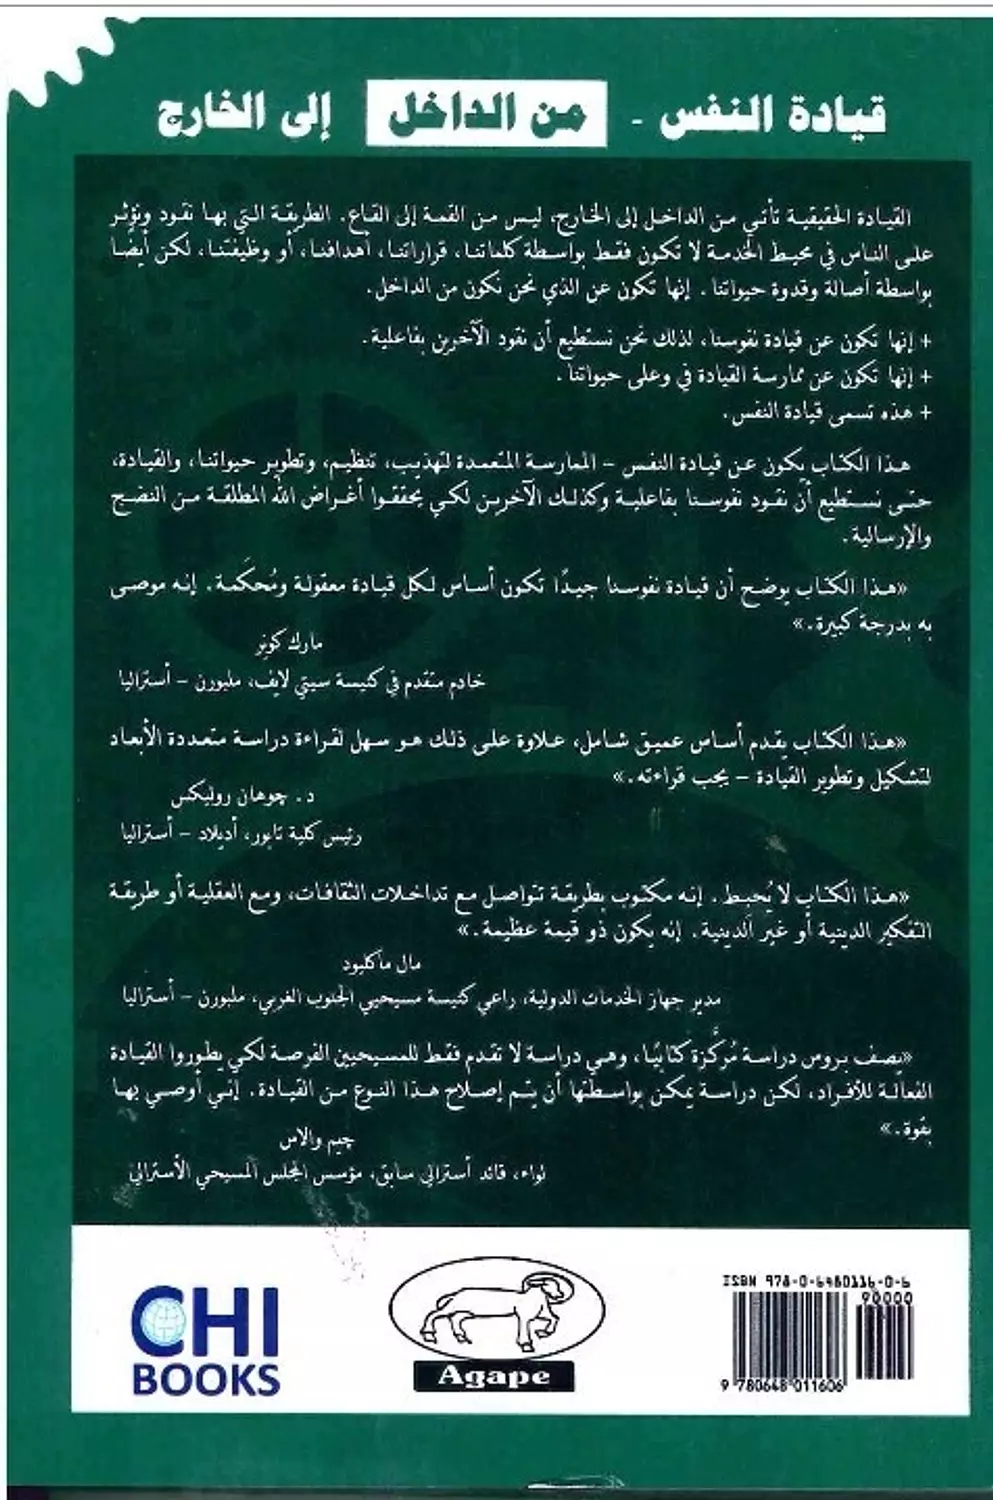 قيادة النفس - من الداخل إلى الخارج
القيادة الحقيقية تأتي من الداخل إلى الخارج، ليس من القمة إلى القاع. الطريقة التي بها نقود ونؤثر
على الناس في محيط الخدمة لا تكون فقط بواسطة كلماتنا، قراراتنا، أهدافنا، أو وظيفتنا، لكن أيضًا
بواسطة أصالة وقدوة حيواتنا. إنها تكون عن الذي نحن نكون من الداخل.
+ إنها تكون عن قيادة نفوسنا، لذلك نحن نستطيع أن نقود الآخرين بفاعلية.
+ إنها تكون عن ممارسة القيادة في وعلى حيواتنا.
+ هذه تسمى قيادة النفس.
هذا الكتاب يكون عن قيادة النفس - الممارسة المتعمدة لتهذيب، تنظيم، وتطوير حيواتنا، والقيادة،
حتى نستطيع أن نقود نفوسنا بفاعلية وكذلك الآخرين لكي يحققوا أغراض الله المطلقة من النضج
والإرسالية.
«هذا الكتاب يوضح أن قيادة نفوسنا جيدًا تكون أساس لكل قيادة معقولة ومُحكَمة. إنه موصى
به بدرجة كبيرة.»
مارك كونر
خادم متقدم في كنيسة سيتي لايف، ملبورن - أستراليا
«هذا الكتاب يقدم أساس عميق شامل، علاوة على ذلك هو سهل لقراءة دراسة متعددة الأبعاد
لتشكيل وتطوير القيادة - يجب قراءته.»
د. چوهان روليكس
رئيس كلية تابور، أديلاد - أستراليا
«هذا الكتاب لا يُحبِط. إنه مكتوب بطريقة تتواصل مع تداخلات الثقافات، ومع العقلية أو طريقة
التفكير الدينية أو غير الدينية. إنه يكون ذو قيمة عظيمة.»
مال ماكليود
مدير جهاز الخدمات الدولية، راعي كنيسة مسيحيي الجنوب الغربي، ملبورن - أستراليا
«يصف بروس دراسة مُركَّزة كتابيًا، وهي دراسة لا تقدم فقط للمسيحيين الفرصة لكي يطوروا القيادة
الفعالة للأفراد، لكن دراسة يمكن بواسطتها أن يتم إصلاح هذا النوع من القيادة. إني أوصي بها
بقوة.»
چيم والاس
لواء، قائد أسترالي سابق، مؤسس المجلس المسيحي الأسترالي
CHI
BOOKS
Agape
ISBN 978-0-6480116-0-6
90000
9 780648 011606